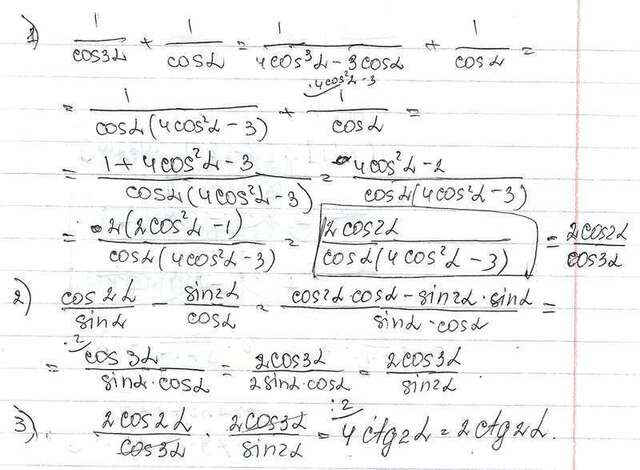 1) 1/cos3α + 1/cosα = 1/(4cos³α – 3cosα) + 1/cosα =
= 1/(cosα(4cos²α – 3)) + 1/cosα (·4cos²α – 3) =
= (1 + 4cos²α – 3)/(cosα(4cos²α – 3)) = (4cos²α – 2)/(cosα(4cos²α – 3))
= 2(2cos²α – 1)/(cosα(4cos²α – 3)) = 2cos2α/(cosα(4cos²α – 3)) = 2cos2α/cos3α
2) cos2α/sinα – sin2α/cosα = (cos2α·cosα – sin2α·sinα)/(sinα·cosα) =
= cos3α (·2)/(sinα·cosα) = 2cos3α/(2sinα·cosα) = 2cos3α/sin2α.
3) 2cos2α/cos3α · 2cos3α/sin2α = 4ctg2α (:2) = 2ctg2α.